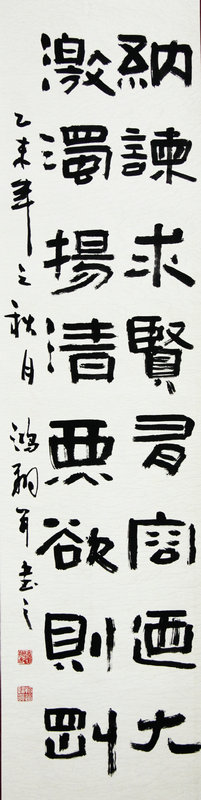 納諫求賢有容迺大
激濁揚清無欲則剛
乙未年之秋月 鴻翔 書之